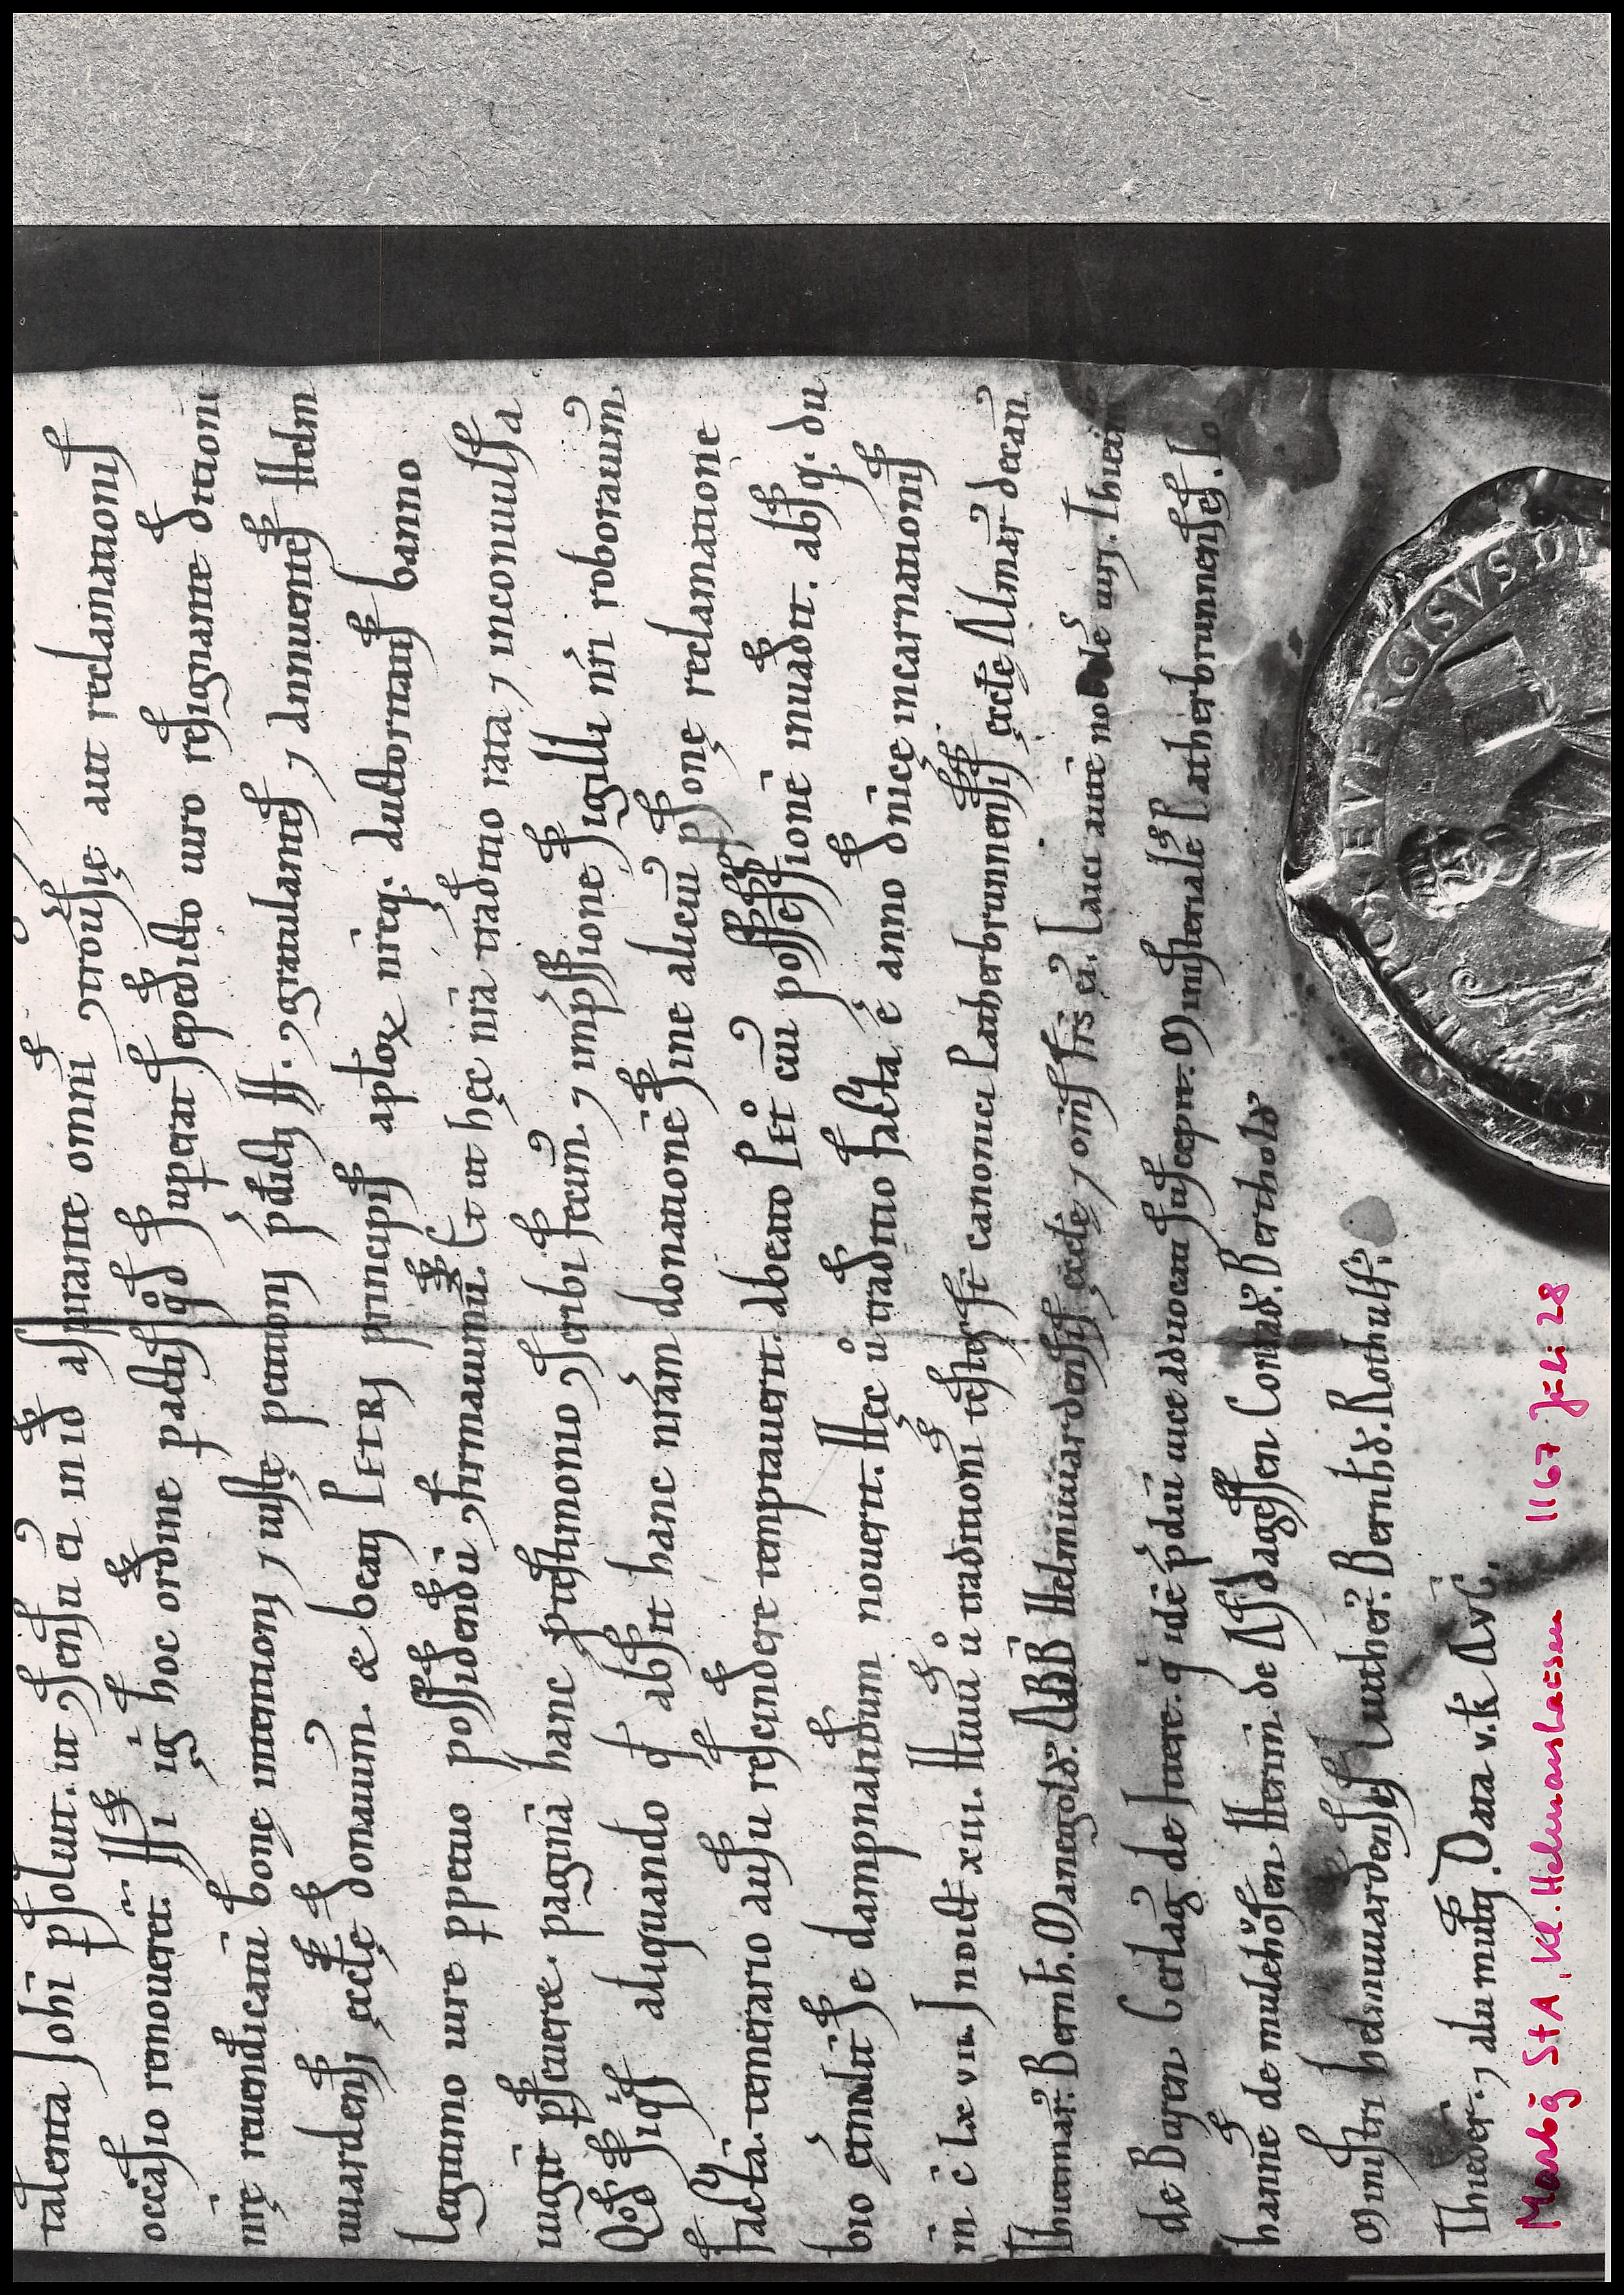 talenta Iohi psoluit. ut ɔsensu ei in id aspirante omni ɔtrousię aut reclamationis
occasio remoueret. His ig hoc ordine pactis qd supererat sepedicto uiro resignante ditioni
nrę reuendicaui bonę intentionj ⁊ iustę petitionj pdictj H. ɔgratulantes ⁊ annuentes Helm
wardensi ęcclę donauim. & beatj PETRJ principis aptoꝝ nreq. auctoritatis banno
legitimo iure ppetuo possidendū ɔfirmauimus. Et ut hęc nrā traditio rata ⁊ inconuulsa
iugit pseueret. paginā hanc ptestimonio ɔscribi fecim. ⁊ impssione sigilli nri roborauim.
Qd siqs aliquando qd absit hanc nrām donationē sine alicui psonę reclamatione
factā. temerario ausu rescindere temptauerit. abeato PETo cui possessionē inuadit. absq. du
bio se dampnandum nouerit. Hec u traditio facta ē anno dnicę incarnationis
m c lx vii. Indict xiii. Huiu u traditioni testes st canonici Patherbrunnensis ęcclę Almar decan
Thietmar. Bernh. Manegold. ABB Helmiwardensis ęcclę ⁊ oms frs ei. Laici aute nobile
de Buren Gerlag de Iuere. q ide pdiū uice aduocati suscepit. Ministeriale Patherbrunnenses. Io
hanne de mulehosen Herim de Asdagessen Conrad. Berthold
Ministri helmiwardenses Luither. Bernhd. Rothulf.
Thieder. ⁊ alii multi. Data v. k Avg.
HEIO EVERGISVS DI
Marbg StA, Kl. Helmarshausen 1167 Juli 28